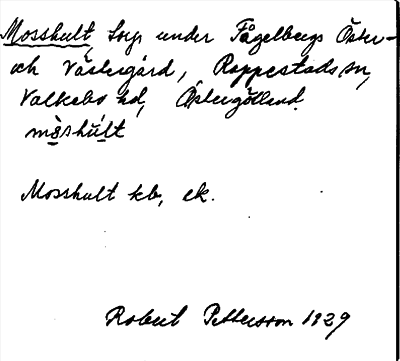 Mosshult, torp under Fågelbergs Öster-
och Västergård, Rappestads sn,
Valkebo hd, Östergötland.
mòshúlt
Mosshult kb, ek.
Robert Pettersson 1929